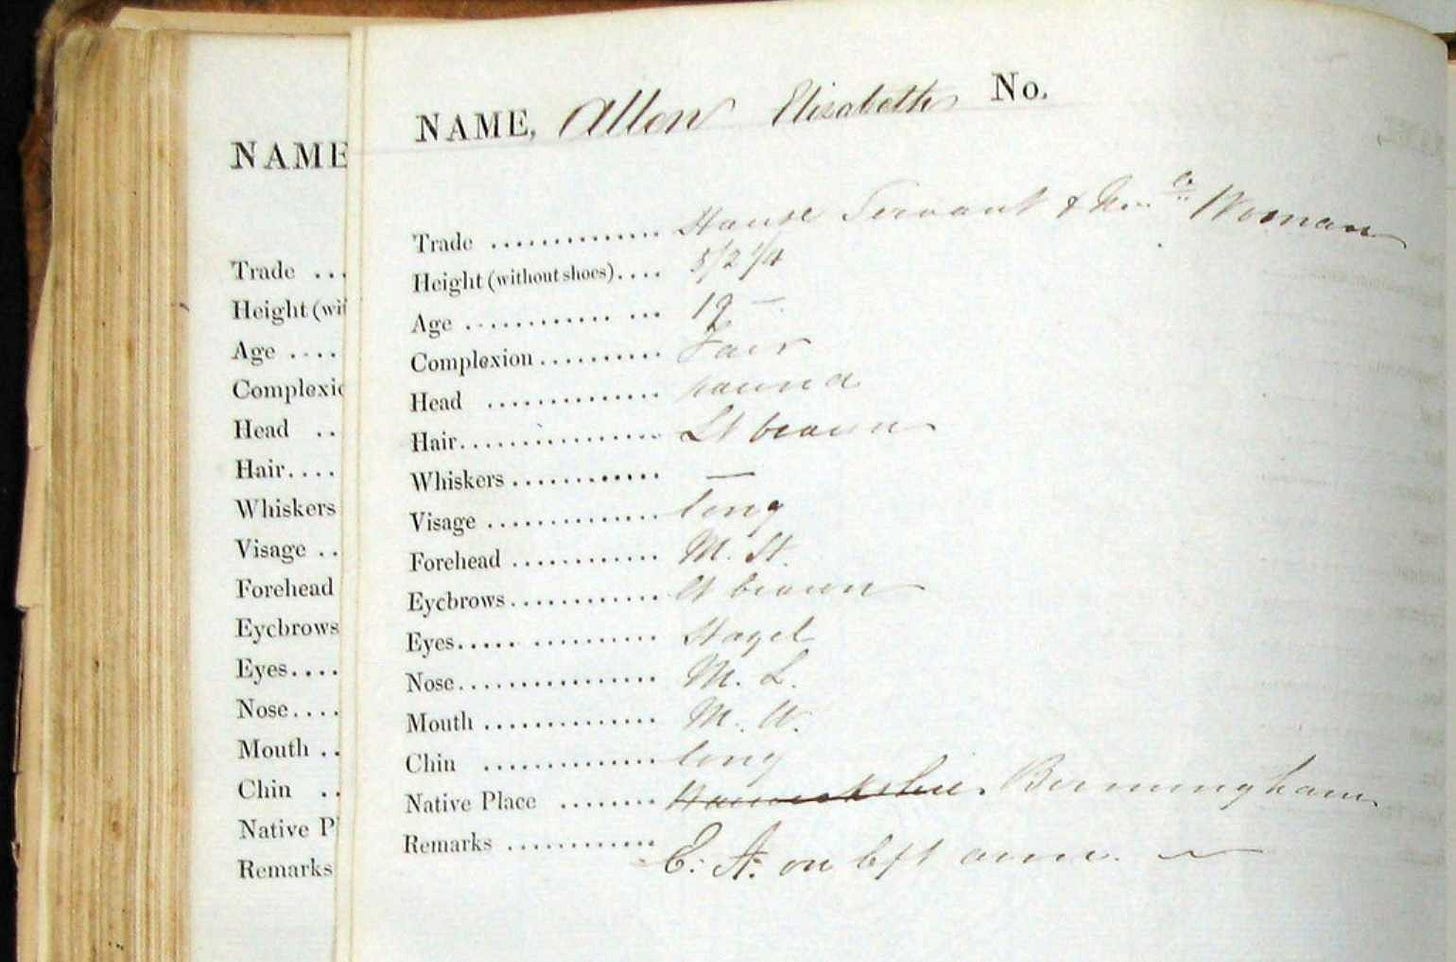 NAME
Trade ...
Height (wit
Age ....
Complexic
Head ..
Hair....
Whiskers
Visage ..
Forehead
Eyebrows
Eyes....
Nose....
Mouth ..
Chin ..
Native P
Remarks
NAME, Allen Elizabeth No.
Trade .............. House Servant & Woman
Height (without shoes).... 5/2 1/4
Age ............ ... 19 –
Complexion .......... Fair
Head .............. round
Hair................ Lt brown
Whiskers ............ —
Visage .............. long
Forehead ............ M. Ht.
Eyebrows............ lt brown
Eyes..... .......... Hazel
Nose................ M. L.
Mouth .............. M. W.
Chin .............. long
Native Place ........ Warwickshire. Birmingham
Remarks ............ E. A. on left arm.